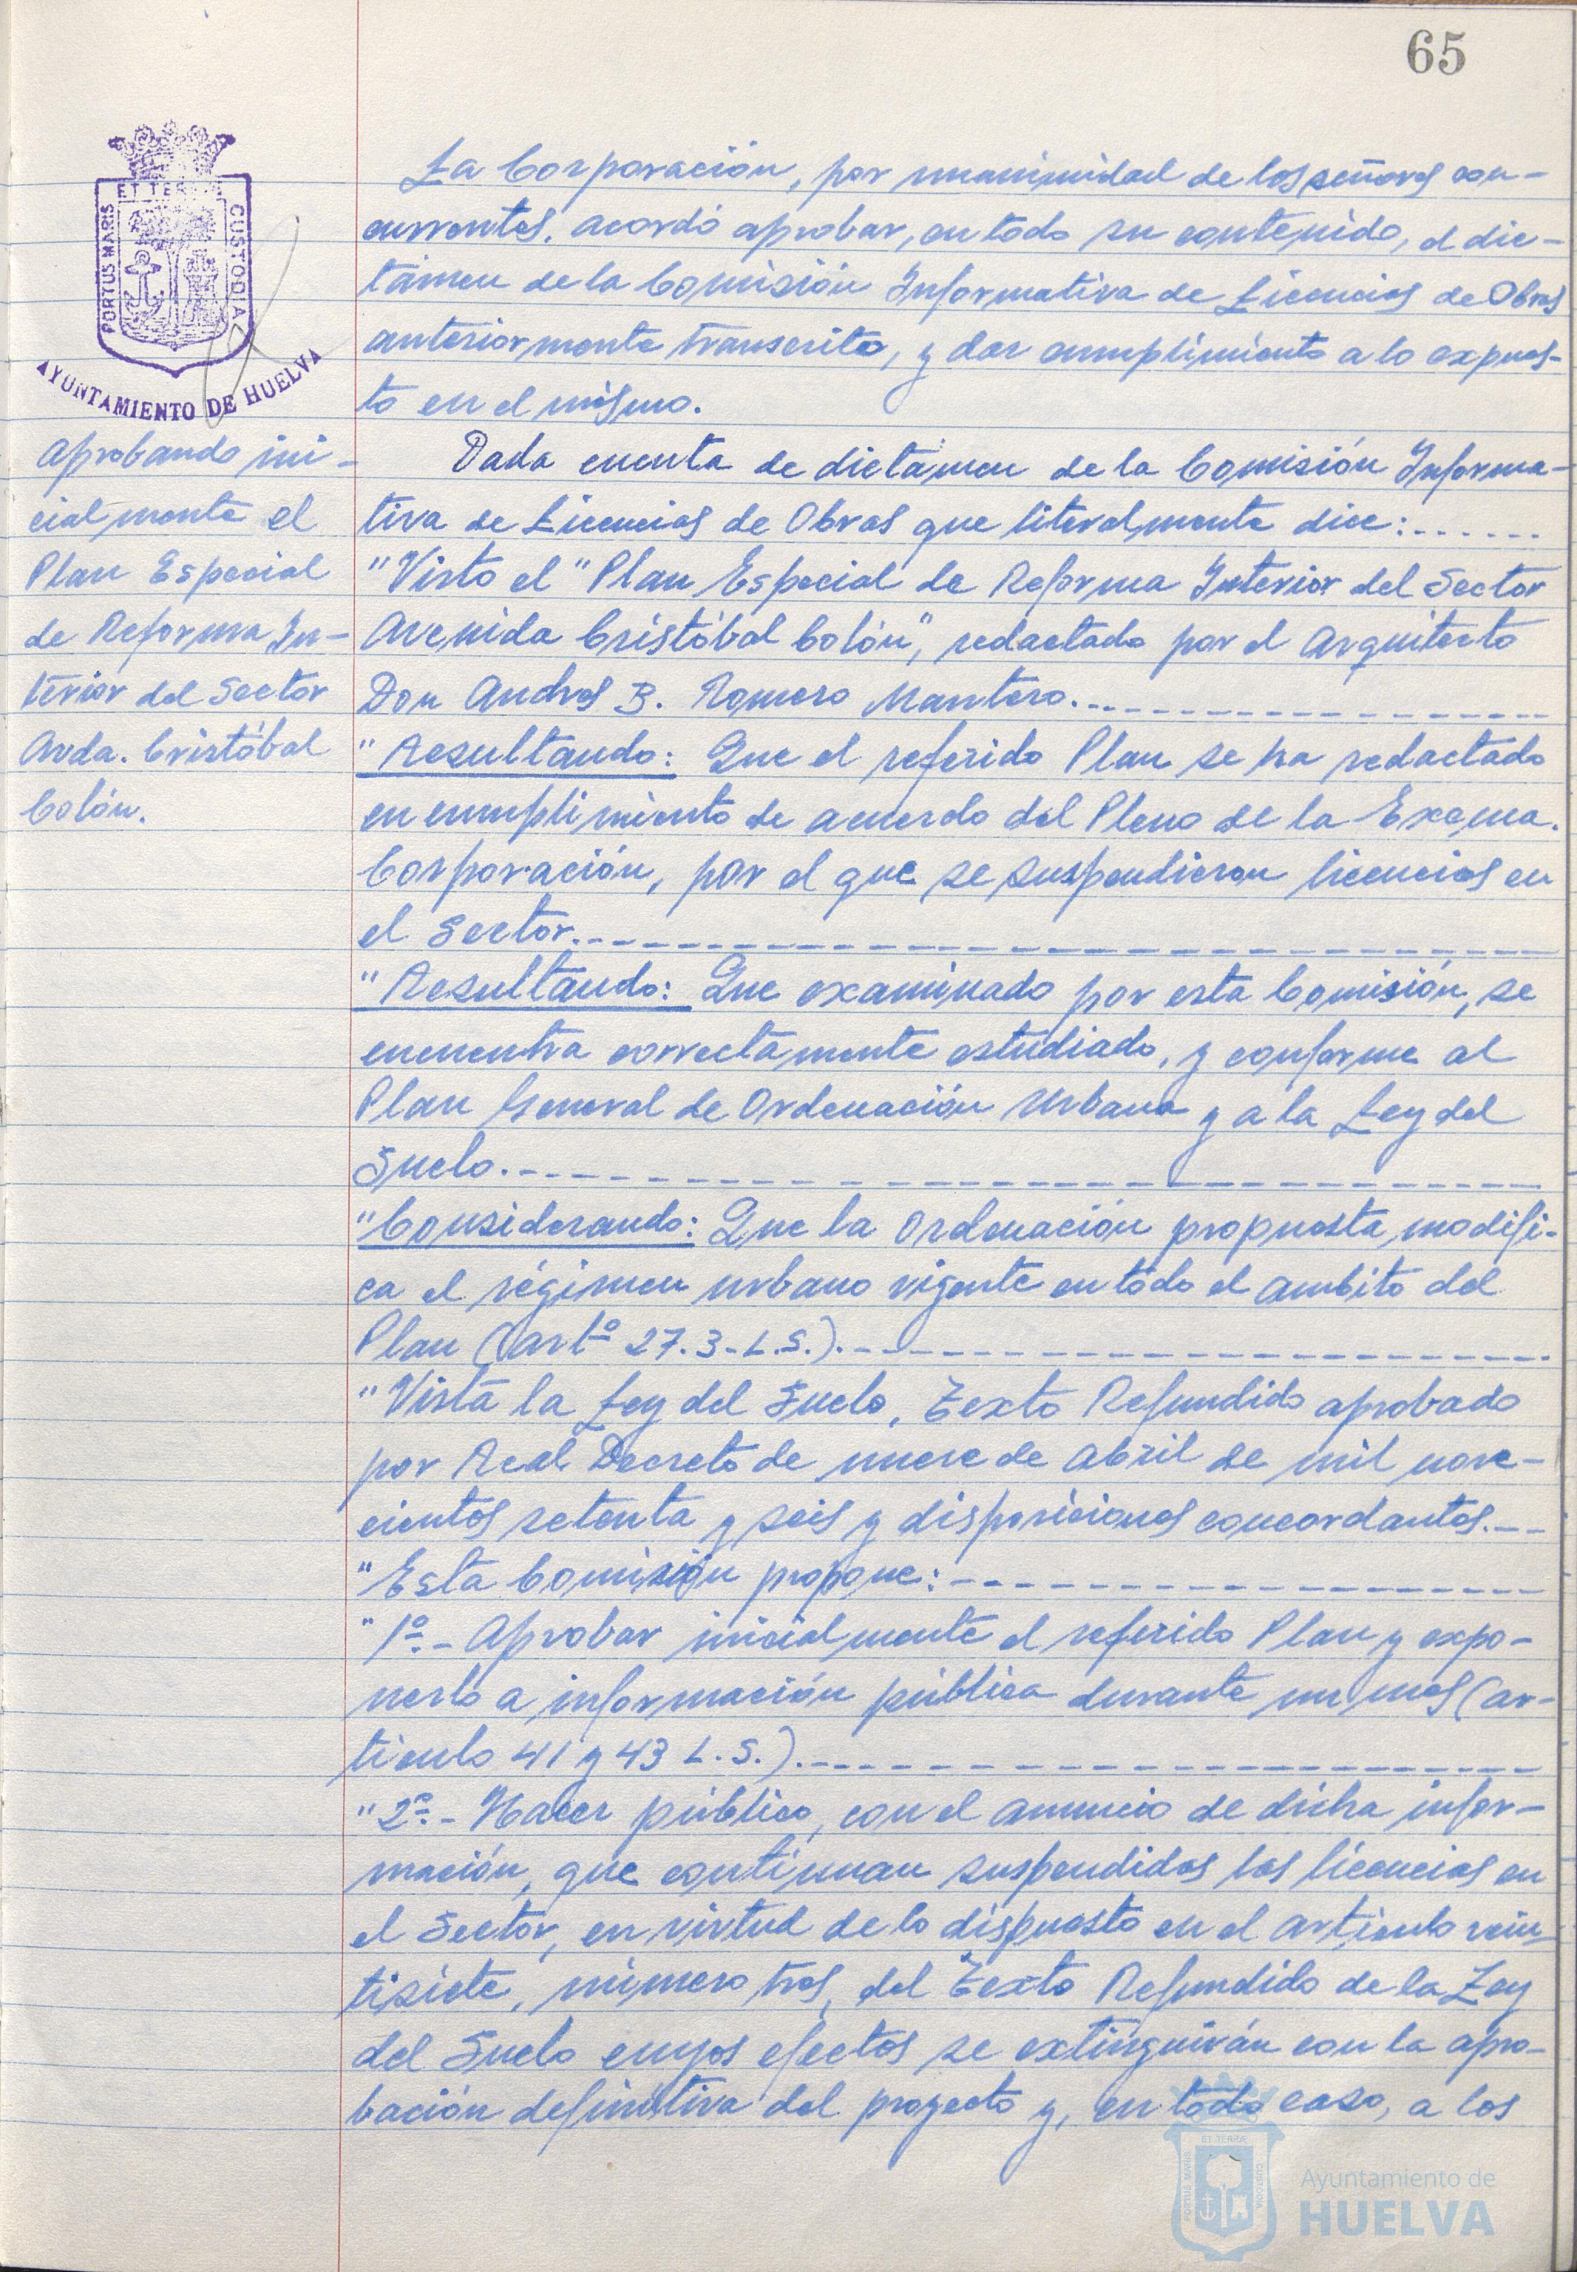 65
ET TERRÆ
PORTUS MARIS
CUSTODIA
AYUNTAMIENTO DE HUELVA
La Corporación, por unanimidad de los señores con-
currentes, acordó aprobar, en todo su contenido, el dic-
támen de la Comisión Informativa de Licencias de Obras
anteriormente transcrito, y dar cumplimiento a lo expues-
to en el mismo.
Aprobando ini-
cialmente el
Plan Especial
de Reforma In-
terior del Sector
Avda. Cristóbal
Colón.
Dada cuenta de dictámen de la Comisión Informa-
tiva de Licencias de Obras que literalmente dice:......
"Visto el "Plan Especial de Reforma Interior del Sector
Avenida Cristóbal Colón", redactado por el Arquitecto
Don Andres B. Romero Mantero.
"Resultando: Que el referido Plan se ha redactado
en cumplimiento de acuerdo del Pleno de la Excma.
Corporación, por el que se suspendieron licencias en
el Sector.
"Resultando: Que examinado por esta Comisión, se
encuentra correctamente estudiado, y conforme al
Plan General de Ordenación Urbana y a la Ley del
Suelo.
"Considerando: Que la Ordenación propuesta, modifi-
ca el régimen urbano vigente en todo el ambito del
Plan (artº 27.3-L.S.).
"Vista la Ley del Suelo, Texto Refundido aprobado
por Real Decreto de nueve de abril de mil nove-
cientos setenta y seis y disposiciones concordantes.
"Esta Comisión propone:
"1º.- Aprobar inicialmente el referido Plan y expo-
nerlo a información pública durante un mes (ar-
ticulo 41 y 43 L.S.).
"2º.- Hacer público, con el anuncio de dicha infor-
mación, que continuan suspendidas las licencias en
el Sector, en virtud de lo dispuesto en el articulo vein-
tisiete, número tres, del Texto Refundido de la Ley
del Suelo cuyos efectos se extinguirán con la apro-
bación definitiva del proyecto y, en todo caso, a los
ET TERRÆ
PORTUS MARIS
CUSTODIA
Ayuntamiento de
HUELVA